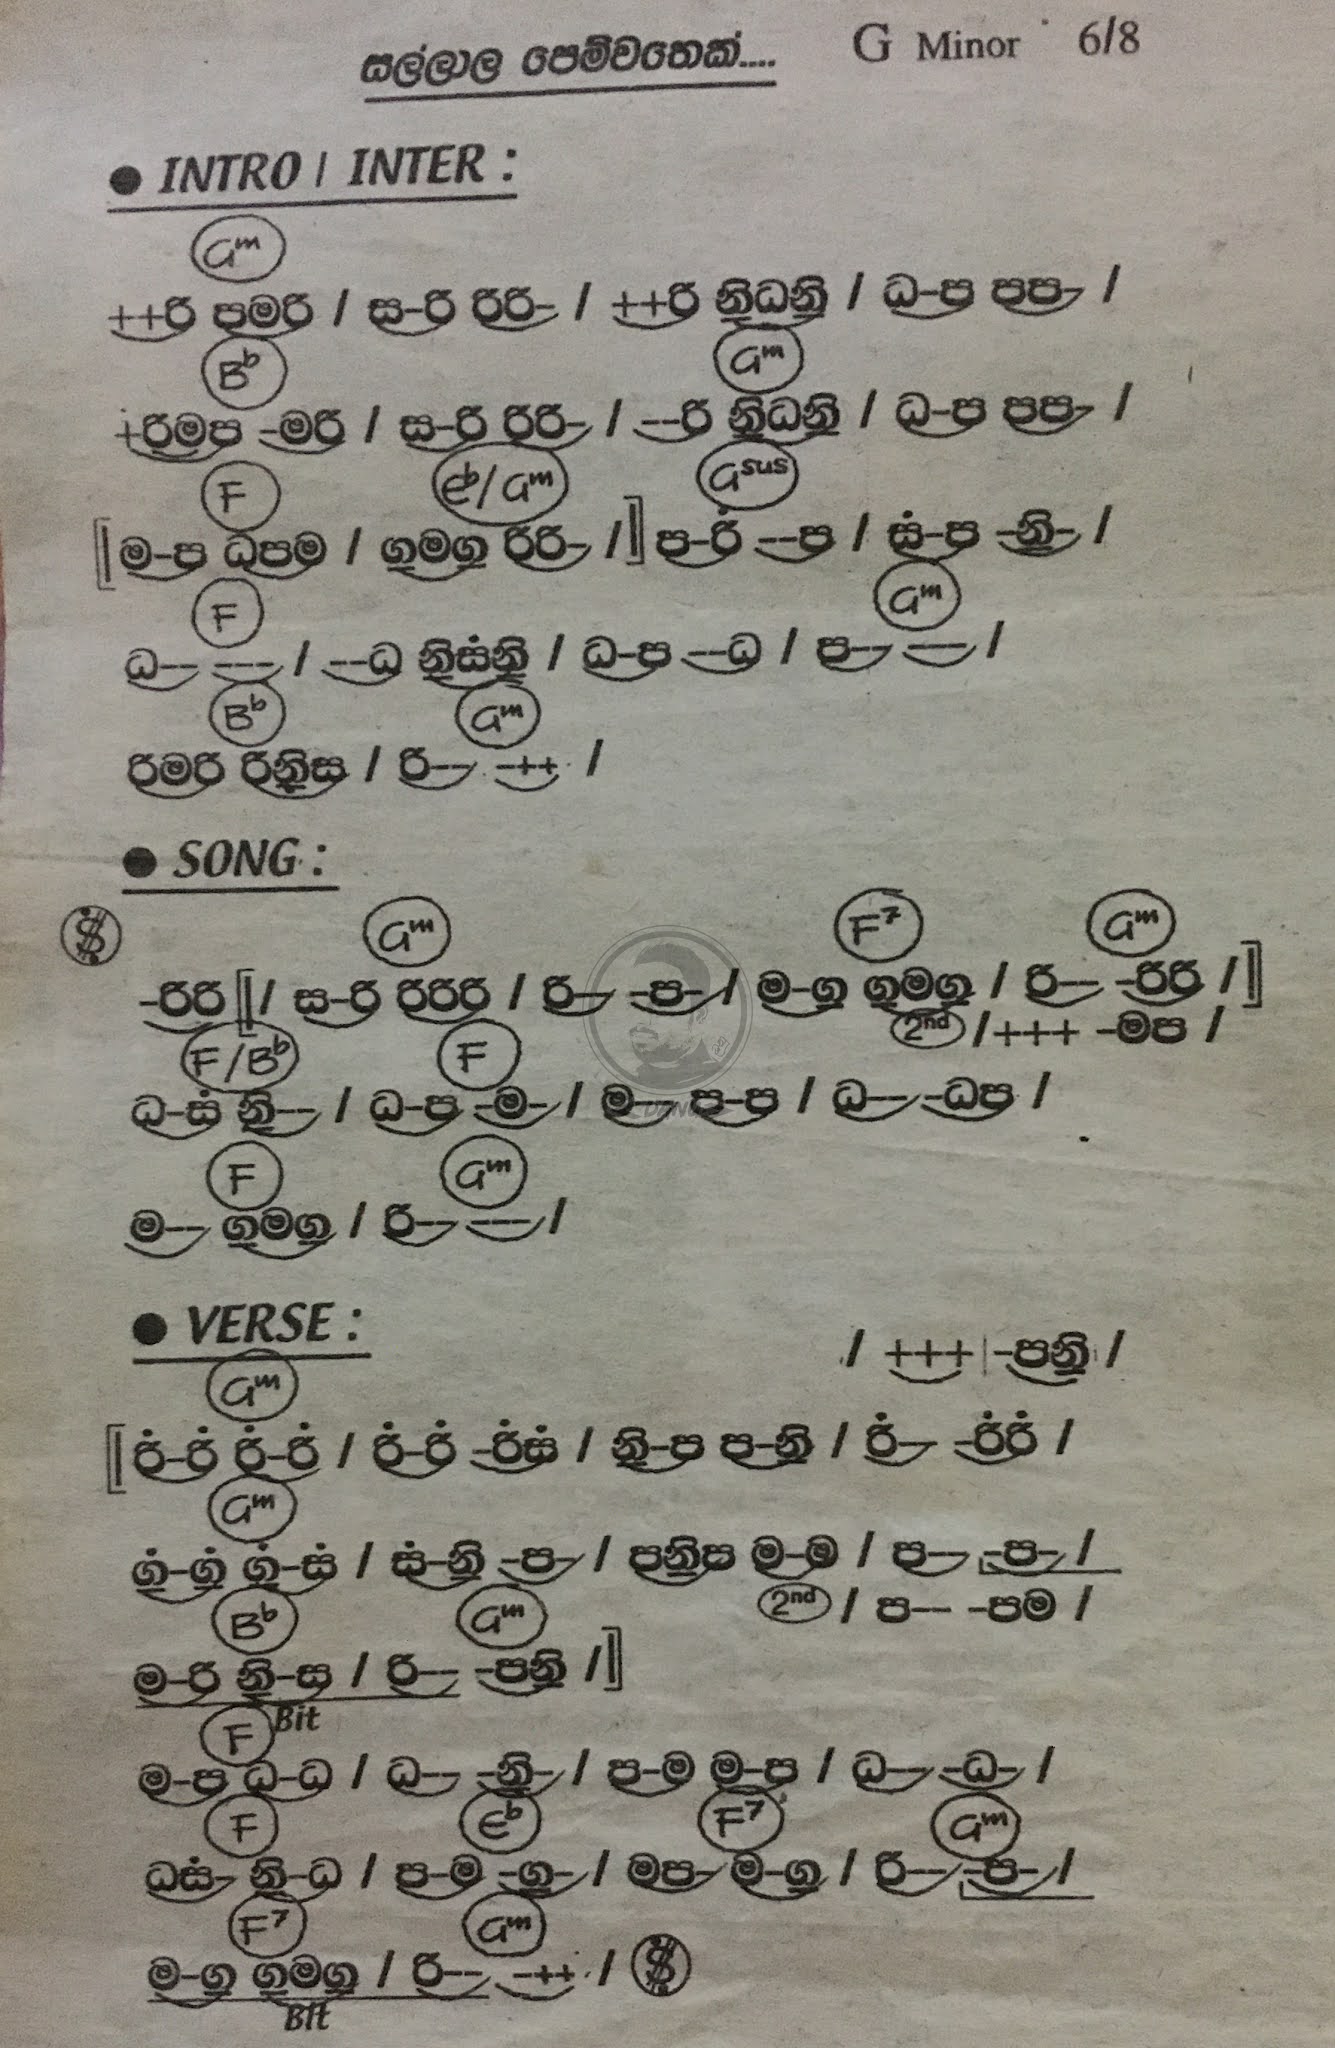 සල්ලාල පෙම්වතෙක්.... G Minor 6/8
● INTRO / INTER :
Gm
++රි පමරි / ස-රි රිරි- / ++රි නිධනි / ධ-ප පප- /
B♭ Gm
+රිමප -මරි / ස-රි රිරි- / --රි නිධනි / ධ-ප පප- /
F E♭/Gm Gsus
[ම-ප ධපම / ගමග රිරි- /] ප-රි̇ --ප / ස̇-ප -නි- /
F Gm
ධ-- --- / --ධ නිස̇නි / ධ-ප --ධ / ප-- --- /
B♭ Gm
රිමරි රිනිස / රි-- -++ /
● SONG :
Gm F7 Gm
𝄋 -රිරි [/ ස-රි රිරිරි / රි-- -ප- / ම-ග ගමග / රි-- -රිරි /]
2nd / +++ -මප /
F/B♭ F
ධ-ස̇ නි-- / ධ-ප -ම- / ම-- ප-ප / ධ-- -ධප /
F Gm
ම-- ගමග / රි-- --- /
● VERSE :
/ +++ -පනි /
Gm
[රි̇-රි̇ රි̇-රි̇ / රි̇-රි̇ -රි̇ස̇ / නි-ප ප-නි / රි̇-- -රි̇රි̇ /
Gm
ග̇-ග̇ ග̇-ස̇ / ස̇-නි -ප- / පනිප ම-ම / ප-- -ප- /
B♭ Gm 2nd / ප-- -පම /
ම-රි නි-ස / රි-- -පනි /]
Bit
F
ම-ප ධ-ධ / ධ-- -නි- / ප-ම ම-ප / ධ-- -ධ- /
F E♭ F7 Gm
ධස̇- නි-ධ / ප-ම -ග- / මප- ම-ග / රි-- -ප- /
F7 Gm
ම-ග ගමග / රි-- -++ / 𝄋
Bit